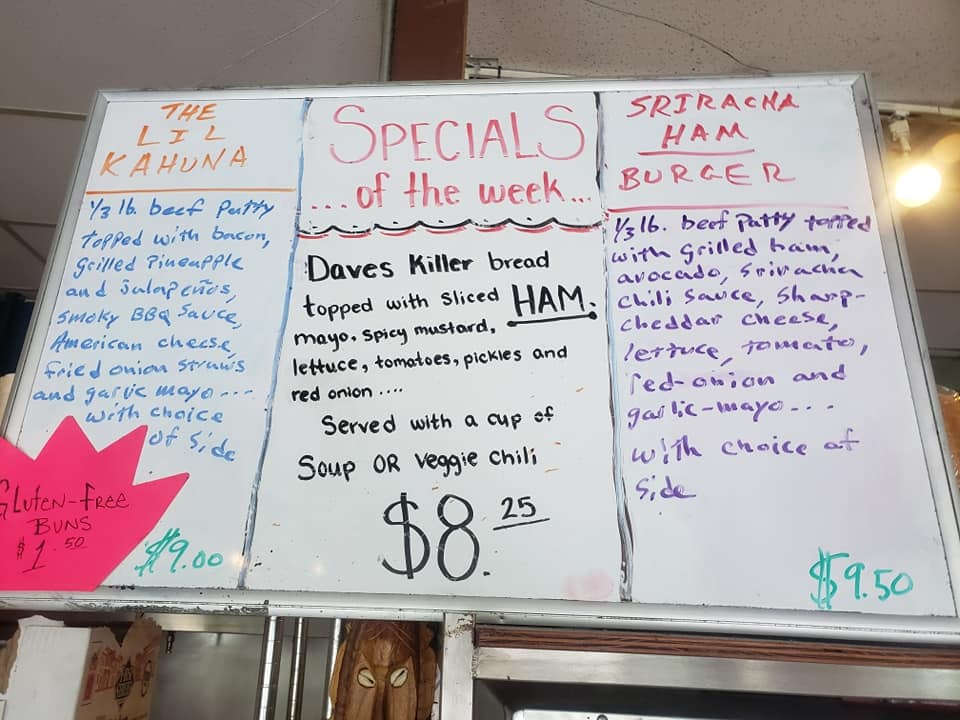 THE
LIL
KAHUNA
1/3 lb. beef patty
topped with bacon,
grilled Pineapple
and Jalapeños,
smoky BBQ Sauce,
American cheese,
fried onion straws
and garlic mayo...
with choice
of side
$9.00
Gluten-free
BUNS
$1.50
SPECIALS
...of the week...
Daves Killer bread
topped with sliced HAM.
mayo, spicy mustard,
lettuce, tomatoes, pickles and
red onion....
Served with a cup of
Soup OR veggie chili
$8.25
SRIRACHA
HAM
BURGER
1/3 lb. beef patty topped
with grilled ham,
avocado, Sriracha
chili sauce, sharp-
cheddar cheese,
lettuce, tomato,
red-onion and
garlic-mayo...
with choice of
side
$9.50